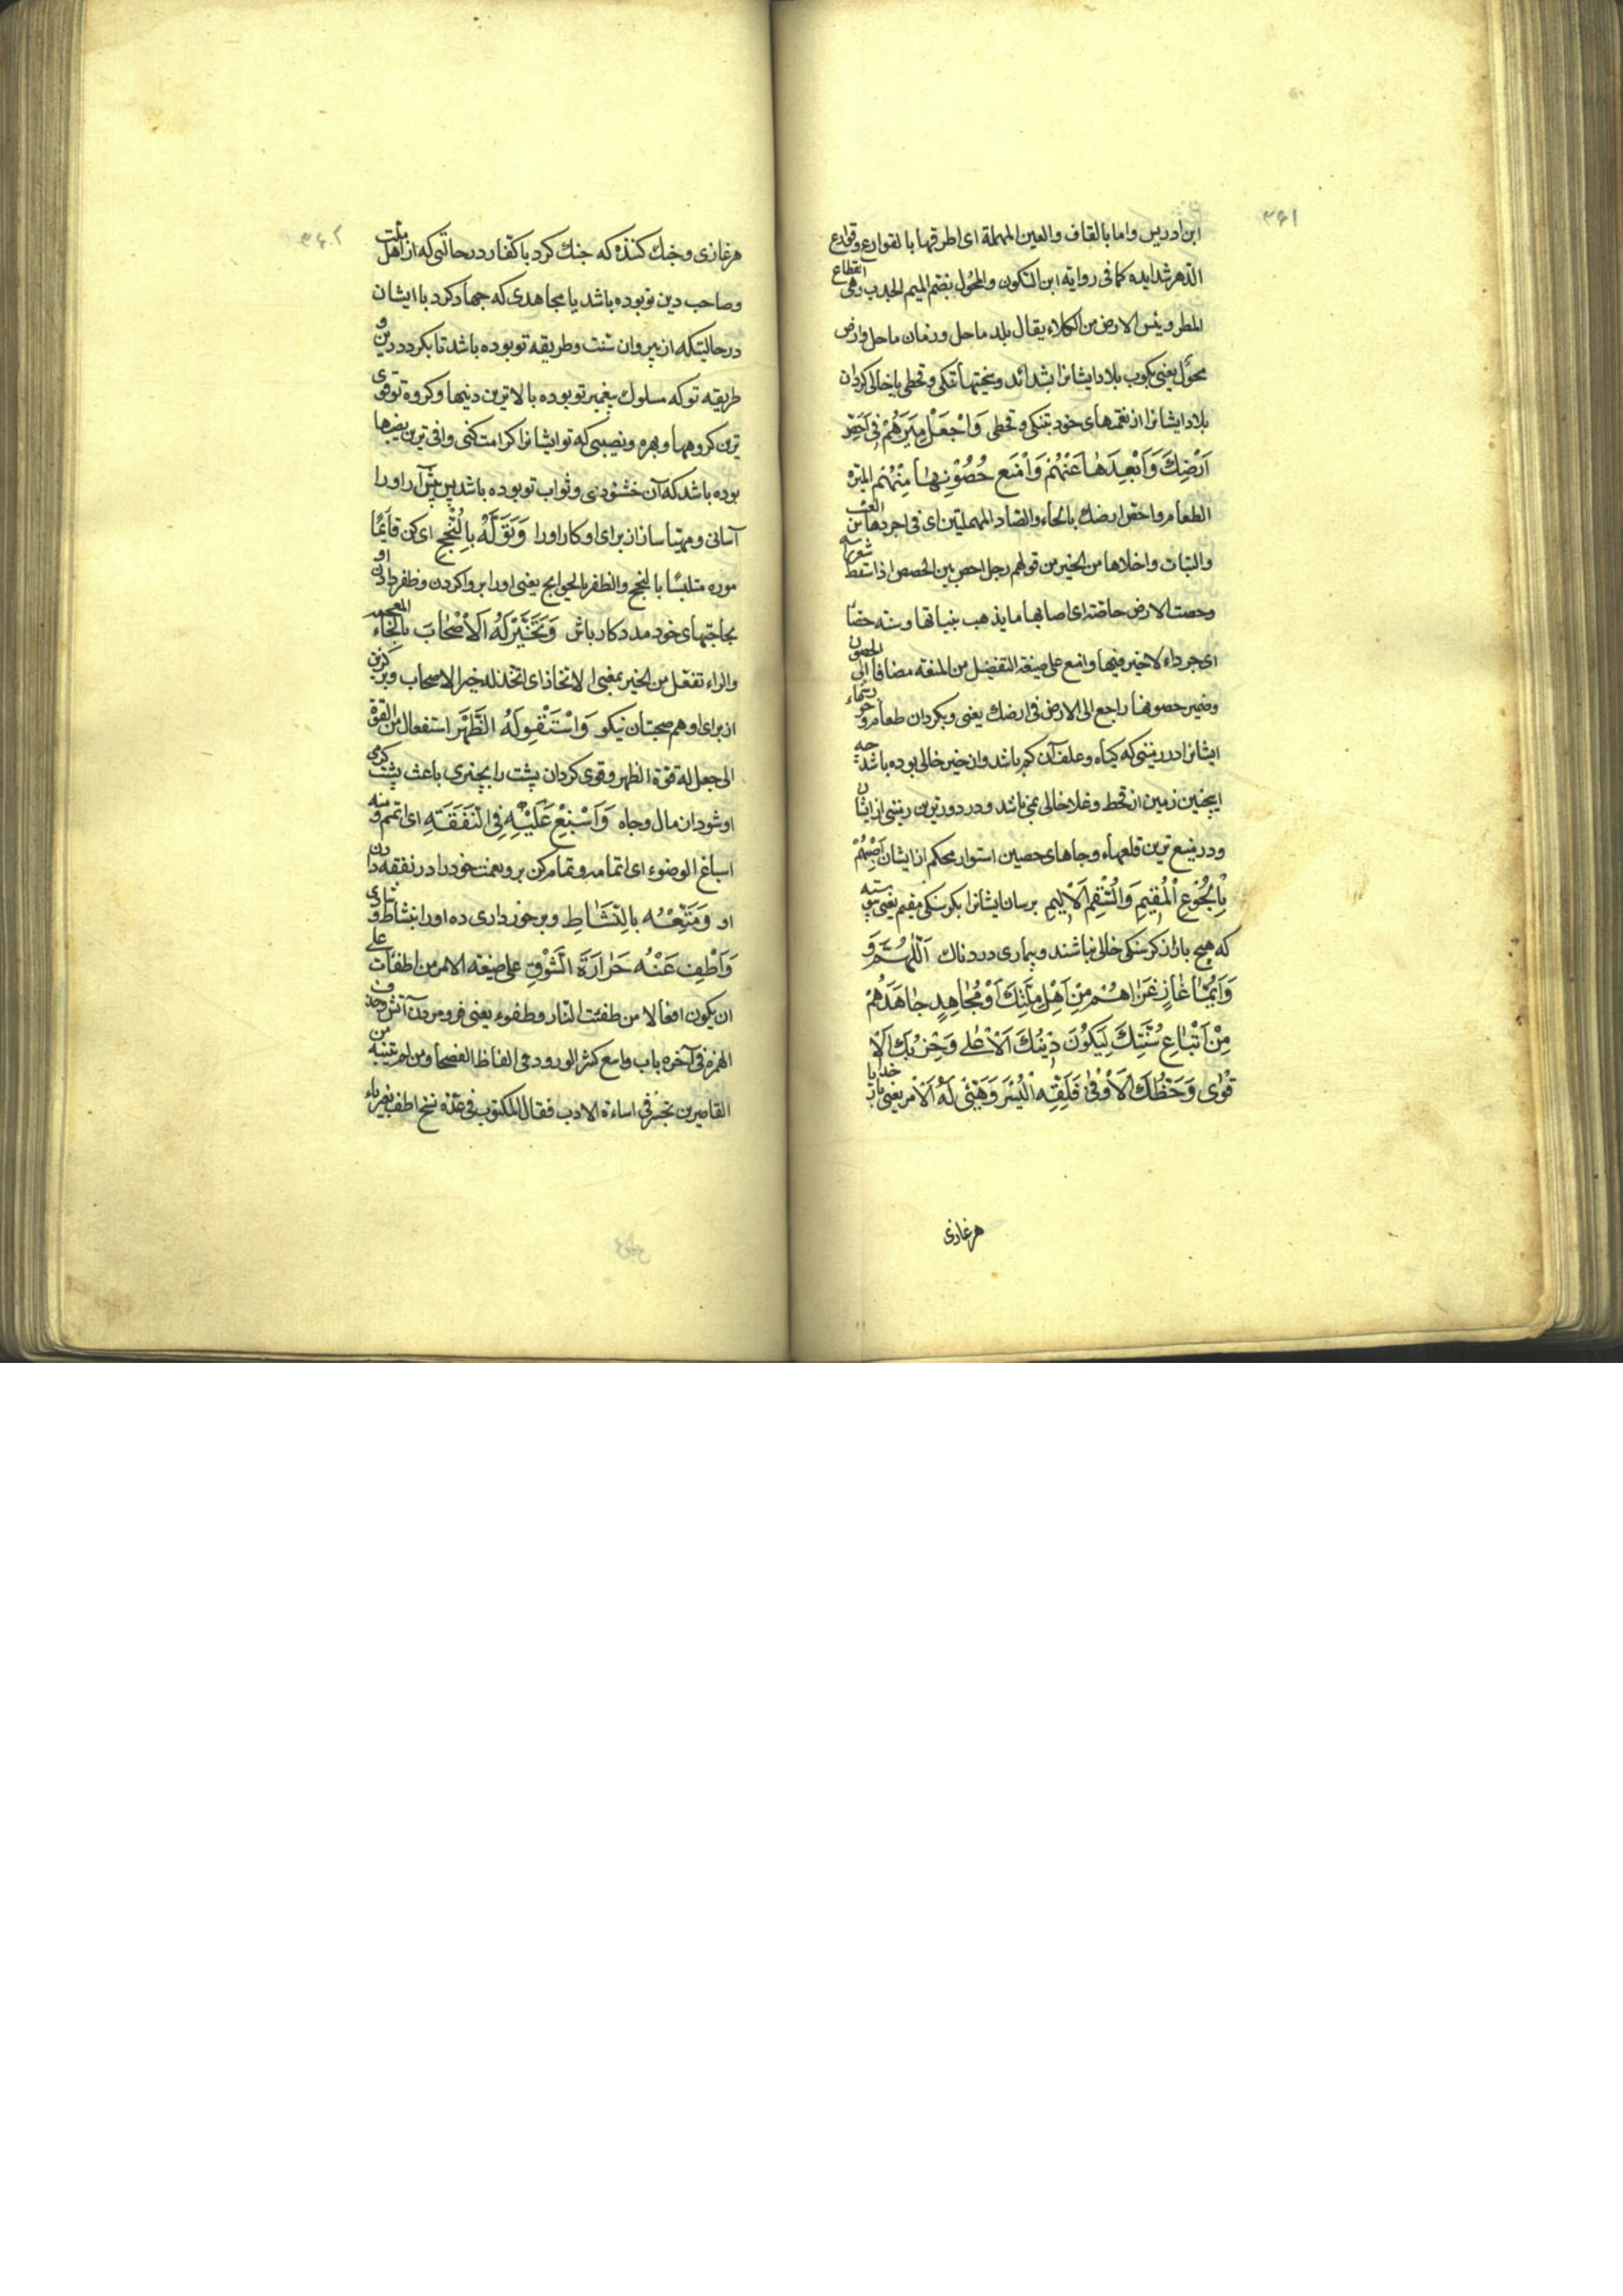 ۳۶۱
ابن ادریس واما بالقاف والعین المهملة ای اطرقها بالقوارع وقوارع
الدهر شدایده کما فی روایة ابن السکون والمحول بضم المیم الجدب وهی انقطاع
المطر ویبس الارض من الکلاء یقال بلد ماحل وزمان ماحل وارض
محول یعنی بکوب بلاد ایشانرا بشدائد وسختیها تنکی وقحطی یا خالی کردان
بلاد ایشانرا از نعمتهای خود بتنکی وقحطی وَاجْعَلْ مِیَرَهُمْ فِی اَحَصِّ
اَرْضِكَ وَاَبْعَدِهَا عَنْهُمْ وَاَمْنَعِ حُصُونِهَا مِنْهُمْ المیرة
الطعام واحص ارضك بالحاء والصاد المهملتین ای فی اجردها من العشب
والنبات واخلاها من الخیر من قولهم رجل احص بین الحصص اذا سقط شعر راسه
وحصت الارض حاصّة ای اصابها ما یذهب بنباتها وسنة حصّا
ای جرداء لا خیر فیها وامنع علی صیغة التفضیل من المنعة مضافا الی الحصون
وضمیر حصونها راجع الی الارض فی ارضك یعنی وبکردان طعام و
ایشانرا در زمینی که کیاه وعلف آن کم باشد وان خیر خالی بوده باشد چه
اینچنین زمین از قحط وغلا خالی نمی باشد ودر دورترین زمینی از ایشان
ودر منیع ترین قلعهاء وجاهای حصین استوار محکم از ایشان اَصِبْهُمْ
بِالْجُوعِ الْمُقِیمِ وَالسُّقْمِ الْاَلِیمِ برسان ایشانرا بکرسنکی مقیم یعنی پیوسته
که هیچ بار از کرسنکی خالی نباشند وبیماری دردناك اَللّٰهُمَّ وَ
وَاَیُّمَا غَازٍ غَزَاهُمْ مِنْ اَهْلِ مِلَّتِكَ اَوْ مُجَاهِدٍ جَاهَدَهُمْ
مِنْ اَتْبَاعِ سُنَّتِكَ لِیَکُونَ دِینُكَ الْاَعْلٰی وَحِزْبُكَ الْاَ
قْوٰی وَحَظُّكَ الْاَوْفٰی فَلَقِّهِ الْیُسْرَ وَهَیِّئْ لَهُ الْاَمْرَ یعنی بار خدایا
هر غازی
۳۶۲
هر غازی وجنك کننده که جنك کرد با کفار در حالتی که از اهل ملت
وصاحب دین تو بوده باشد یا مجاهدی که جهاد کرد با ایشان
در حالیتکه از پیروان سنت وطریقه تو بوده باشد تا بکردد دین و
طریقه تو که مسلوك پیغمبر تو بوده بالاترین دینها وکروه تو قوی
ترین کروهها وبهره ونصیبی که تو ایشانرا کرامت کنی وافی ترین نصیبها
بوده باشد که آن خشنودی وثواب تو بوده باشد پس پیش آر او را
آسانی ومهیا ساز از برای او کار او را وَتَوَلَّهُ بِالنُّجْحِ ای کن قائمًا
موره متلبسًا بالنجح والظفر بالحوایج یعنی او را بروا کردن وظفر دادن او
بحاجتهای خود مددکار باش وَتَخَیَّرْ لَهُ الْاَصْحَابَ بالخاء المعجمه
والراء تفعّل من الخیر بمعنی الاتخاذ ای اتخذ له خیر الاصحاب وبرکزین
از برای او هم صحبتان نیکو وَاسْتَقْوِ لَهُ الظَّهْرَ استفعال من القوة
الی جعل له قوة الظهر وقوی کردان پشت را بچیزی باعث پشت کرمی
او شود از مال وجاه وَاَسْبِغْ عَلَیْهِ فِی النَّفَقَةِ ای اتمم ومنه
اسباغ الوضوء ای اتمامه وتمام کن برو نعمت خود را در نفقه دادن
او وَمَتِّعْهُ بِالنَّشَاطِ وبرخورداری ده او را بنشاط وشادی
وَاَطْفِ عَنْهُ حَرَارَةَ الشَّوْقِ علی صیغة الامر من اطفات علی
ان یکون افعالا من طفئت النار وطفوء یعنی فرو مردن آتش وحذف
الهمزه فی آخره باب واسع کثر الورود فی الفاظ الفصحا ومن لم یتنبه من
القاصرین تجبر فی اساءة الادب فقال المکتوب فی عدّة نسخ اطف بغیر یاء